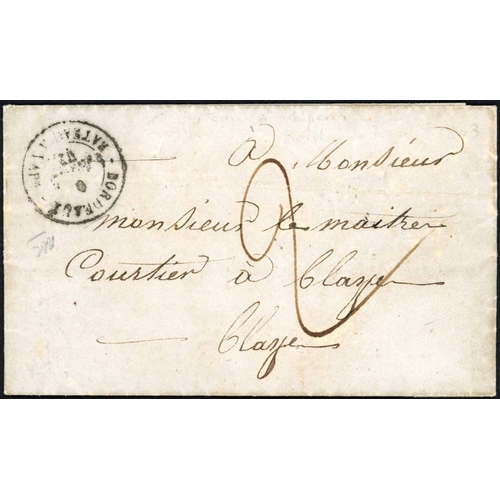 BORDEAUX
BATEAU A VAP
6
à Monsieur
monsieur le maitre
Courtier à Blaye
Blaye
2